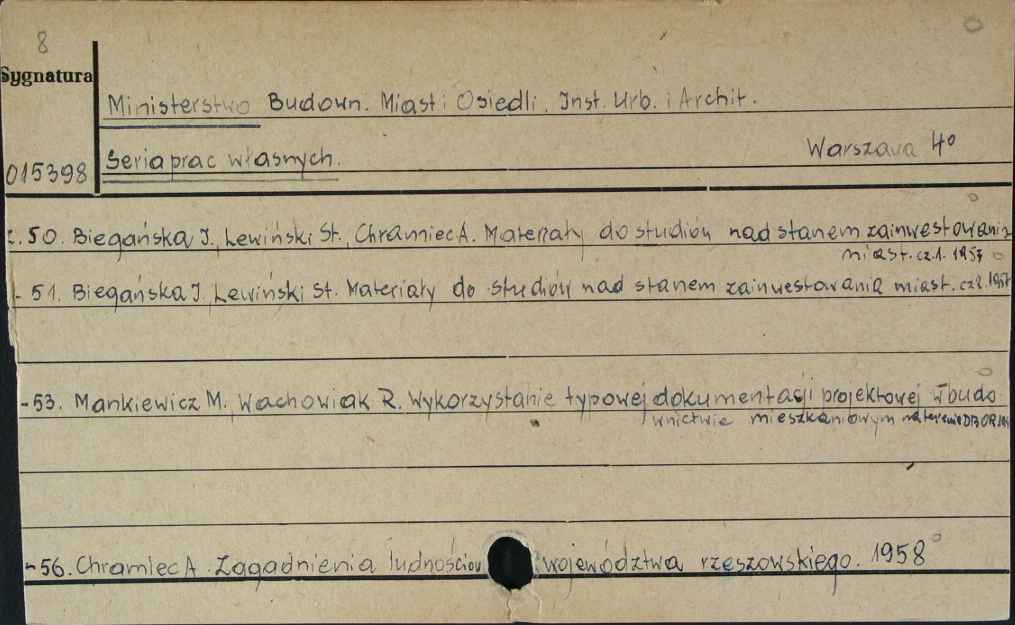 8
Sygnatura
Ministerstwo Budown. Miast i Osiedli. Inst. Urb. i Archit.
Seria prac własnych. Warszawa 4°
015398
z. 50. Biegańska J., Lewiński St., Chramiec A. Materiały do studiów nad stanem zainwestowania
miast. cz. 1. 1957
- 51. Biegańska J. Lewiński St. Materiały do studiów nad stanem zainwestowania miast. cz 2. 1957
- 53. Mankiewicz M., Wachowiak R. Wykorzystanie typowej dokumentacji projektowej w budo-
wnictwie mieszkaniowym na terenie DBOR
- 56. Chramiec A. Zagadnienia ludnościow województwa rzeszowskiego. 1958